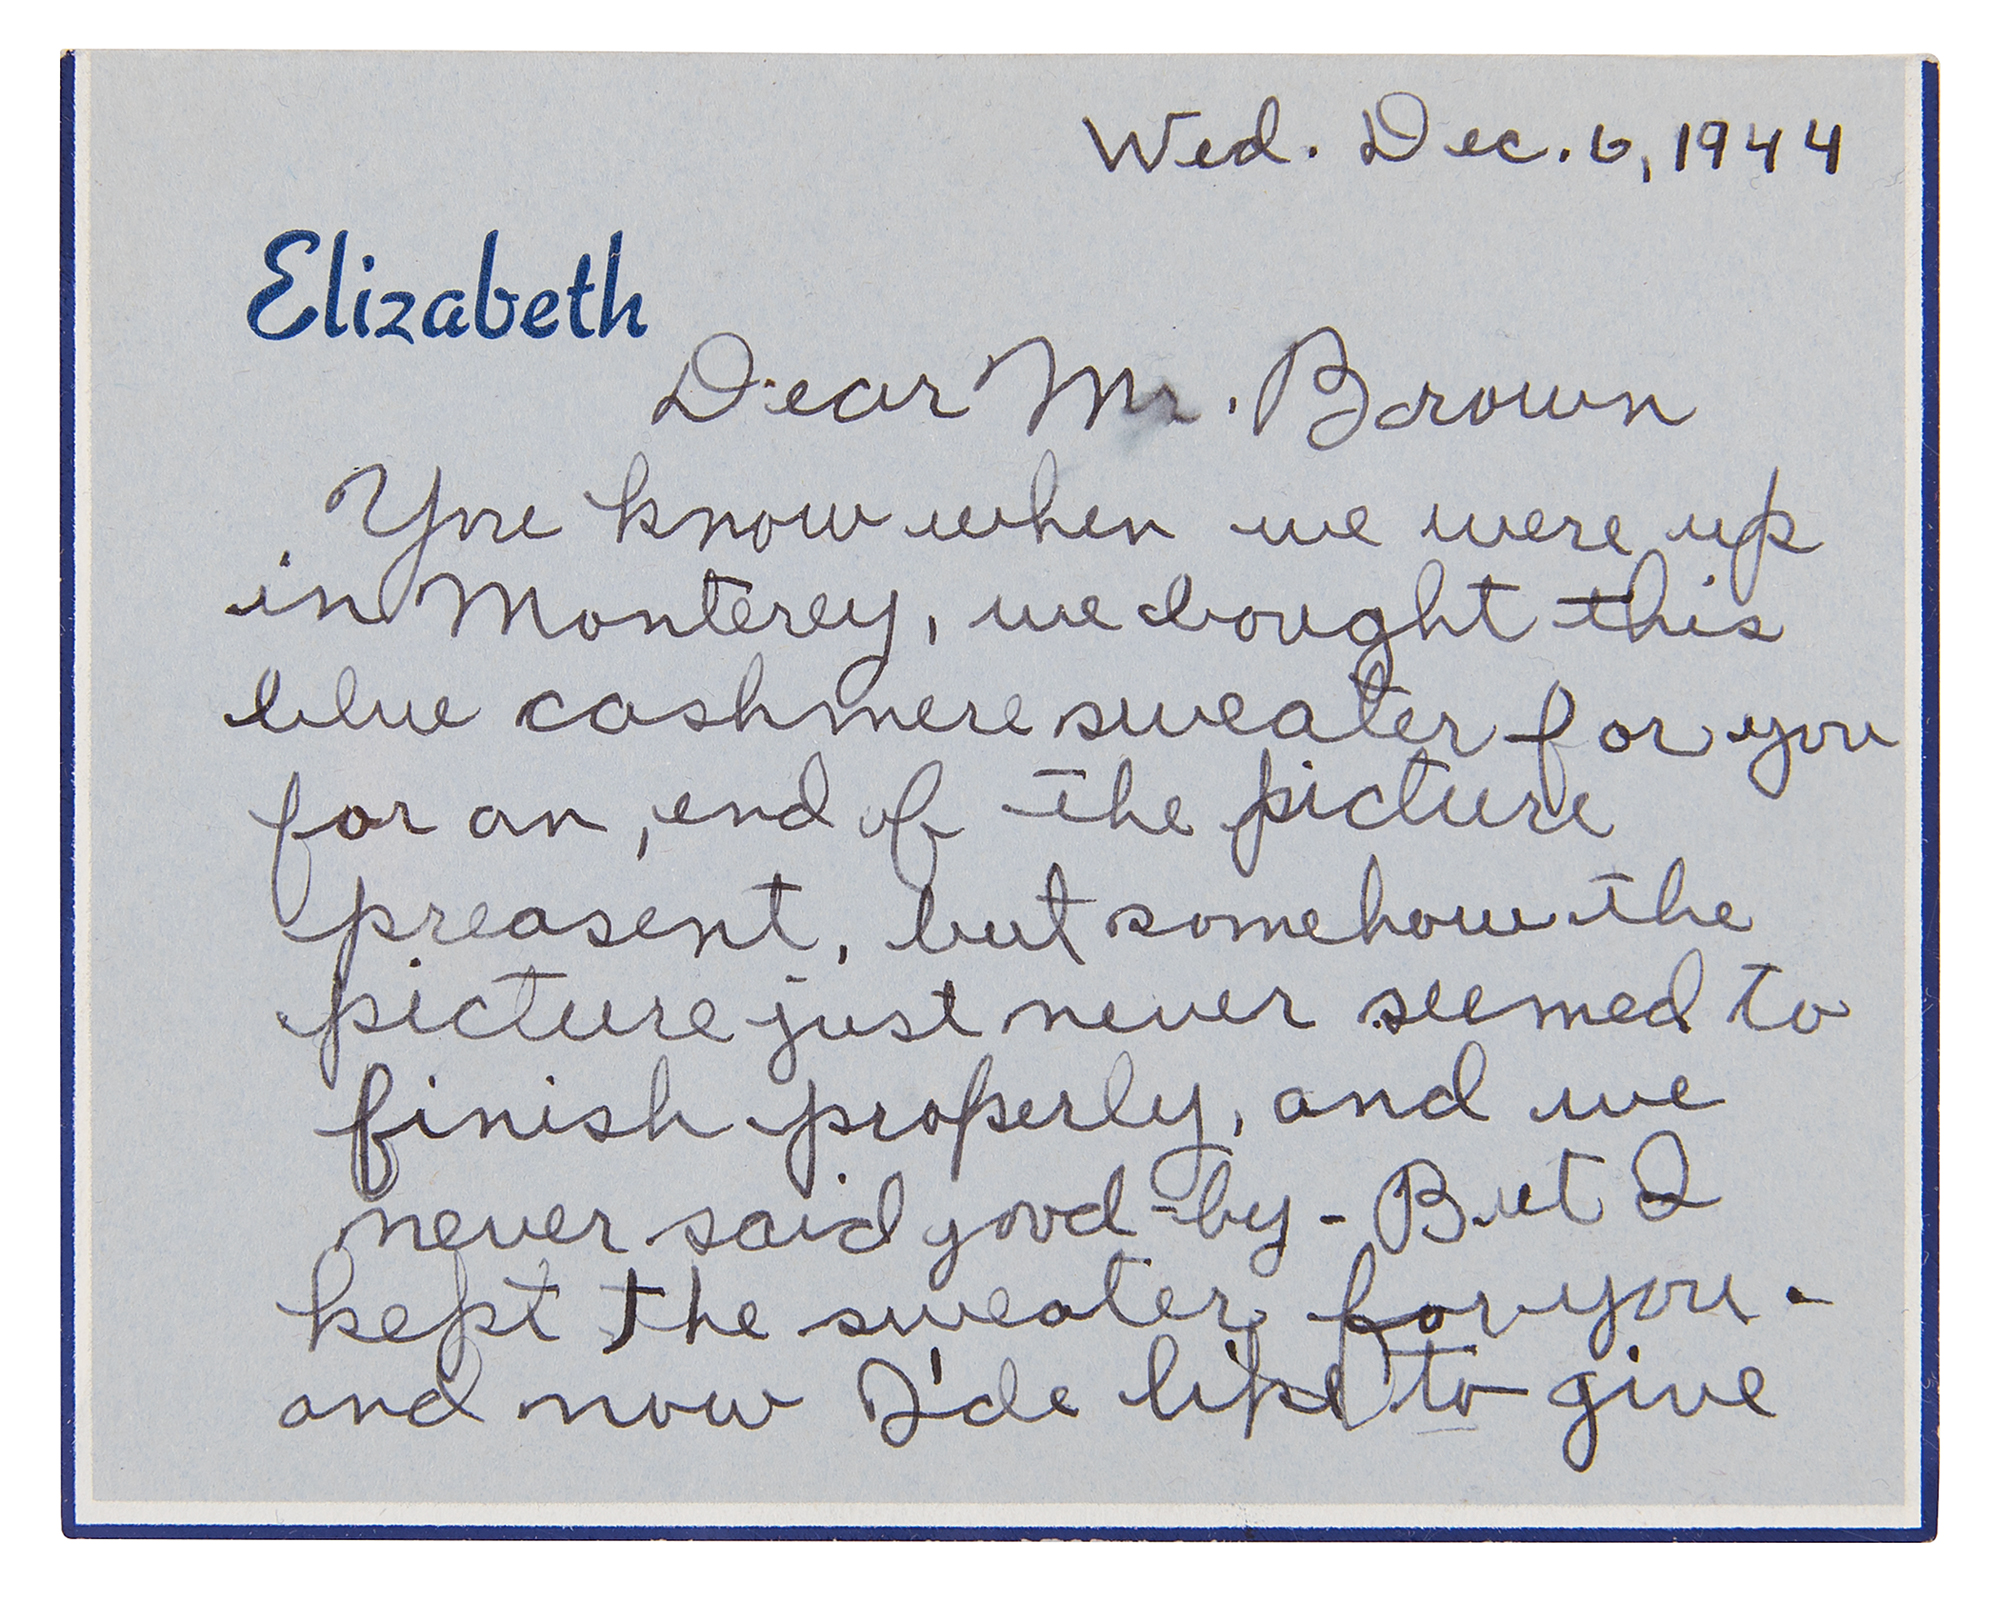 Wed. Dec. 6, 1944
Elizabeth
Dear Mr. Brown
You know when we were up
in Monterey, we bought this
blue cashmere sweater for you
for an, end of the picture
preasent, but somehow the
picture just never seemed to
finish properly, and we
never said good-by - But I
kept the sweater for you -
and now I'de like to give